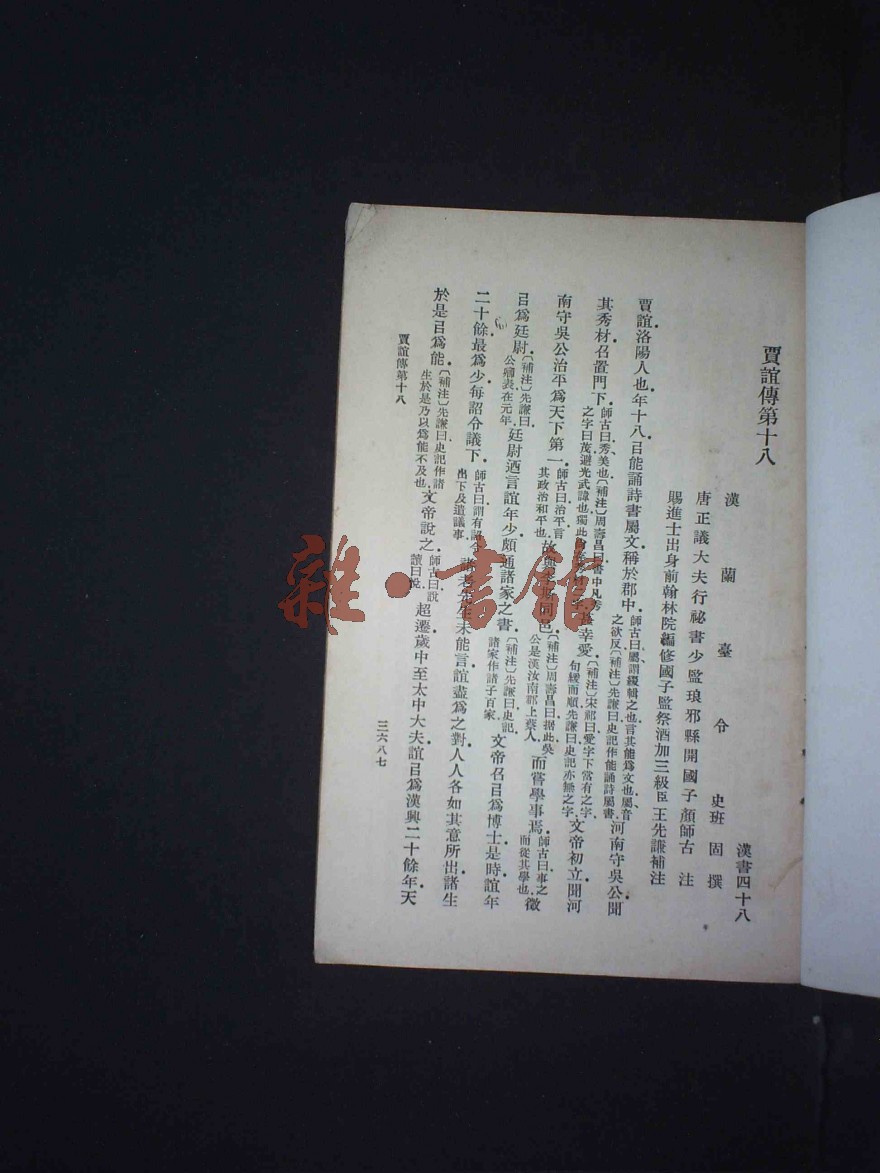 賈誼傳第十八
漢書四十八
漢蘭臺令史班固撰
唐正議大夫行祕書少監琅邪縣開國子顏師古注
賜進士出身前翰林院編修國子監祭酒加三級臣王先謙補注
賈誼洛陽人也年十八㠯能誦詩書屬文稱於郡中師古曰屬謂綴輯之也言其能爲文也屬音之欲反〔補注〕先謙曰史記作能誦詩屬書河南守吳公聞
其秀材召置門下師古曰秀美也〔補注〕周壽昌曰書中凡秀之字曰茂避光武諱也獨此幸愛〔補注〕宋祁曰愛字下當有之字句緩而順先謙曰史記亦無之字文帝初立聞河
南守吳公治平爲天下第一師古曰治平言其政治和平也故與李斯同邑〔補注〕周壽昌曰據此吳公是漢汝南郡上蔡人而嘗學事焉師古曰事之而從其學也徵
㠯爲廷尉〔補注〕先謙曰公卿表在元年廷尉迺言誼年少頗通諸家之書〔補注〕先謙曰史記諸家作諸子百家文帝召㠯爲博士是時誼年
二十餘最爲少每詔令議下師古曰謂有詔令出下及遣議事諸老先生未能言誼盡爲之對人人各如其意所出諸生
於是㠯爲能〔補注〕先謙曰史記作諸生於是乃以爲能不及也文帝說之師古曰說讀曰悅超遷歲中至太中大夫誼㠯爲漢興二十餘年天
賈誼傳第十八
三六八七
雜·書館